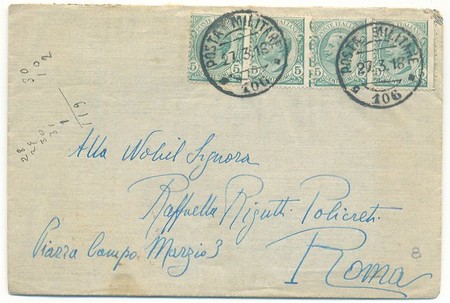 POSTA MILITARE
27.3.16
106
POSTA MILITARE
27.3.16
106
5 5 5 5
30
1 02
119
28
28
30
31
1
Alla Nobil Signora
Raffaella Rigutti Policreti
Piazza Campo Marzio 3
Roma
8